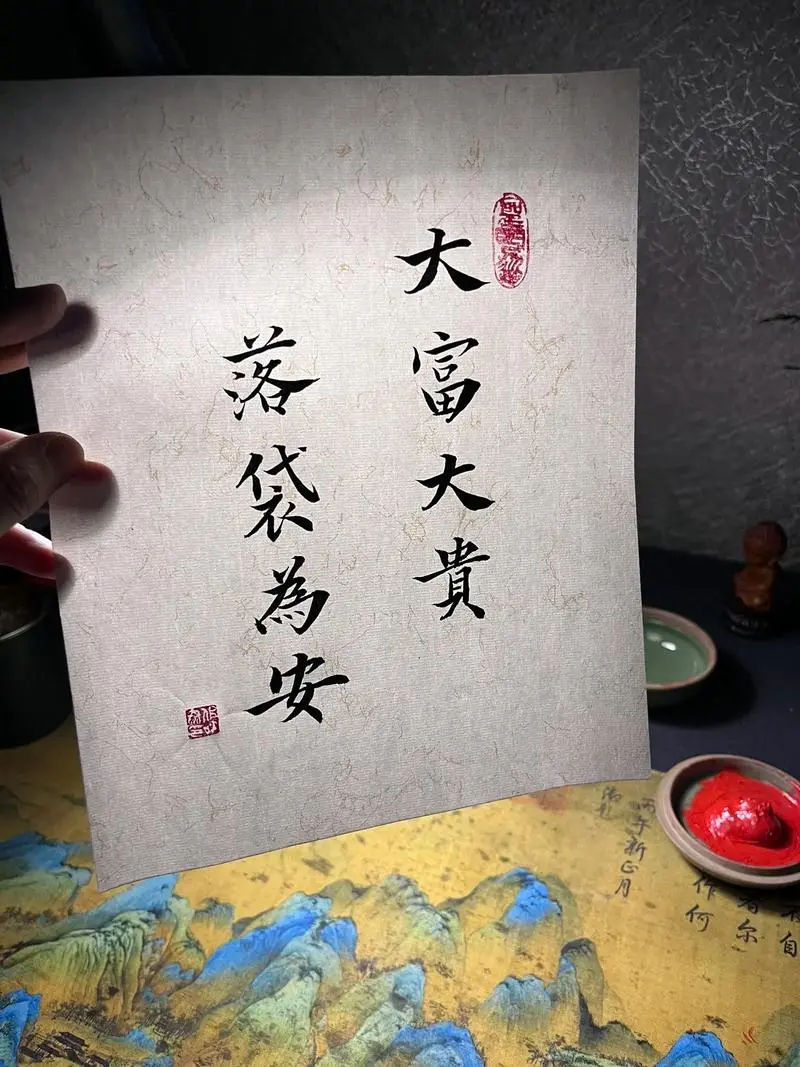 大富大貴
落袋為安
丙午新正月
作何